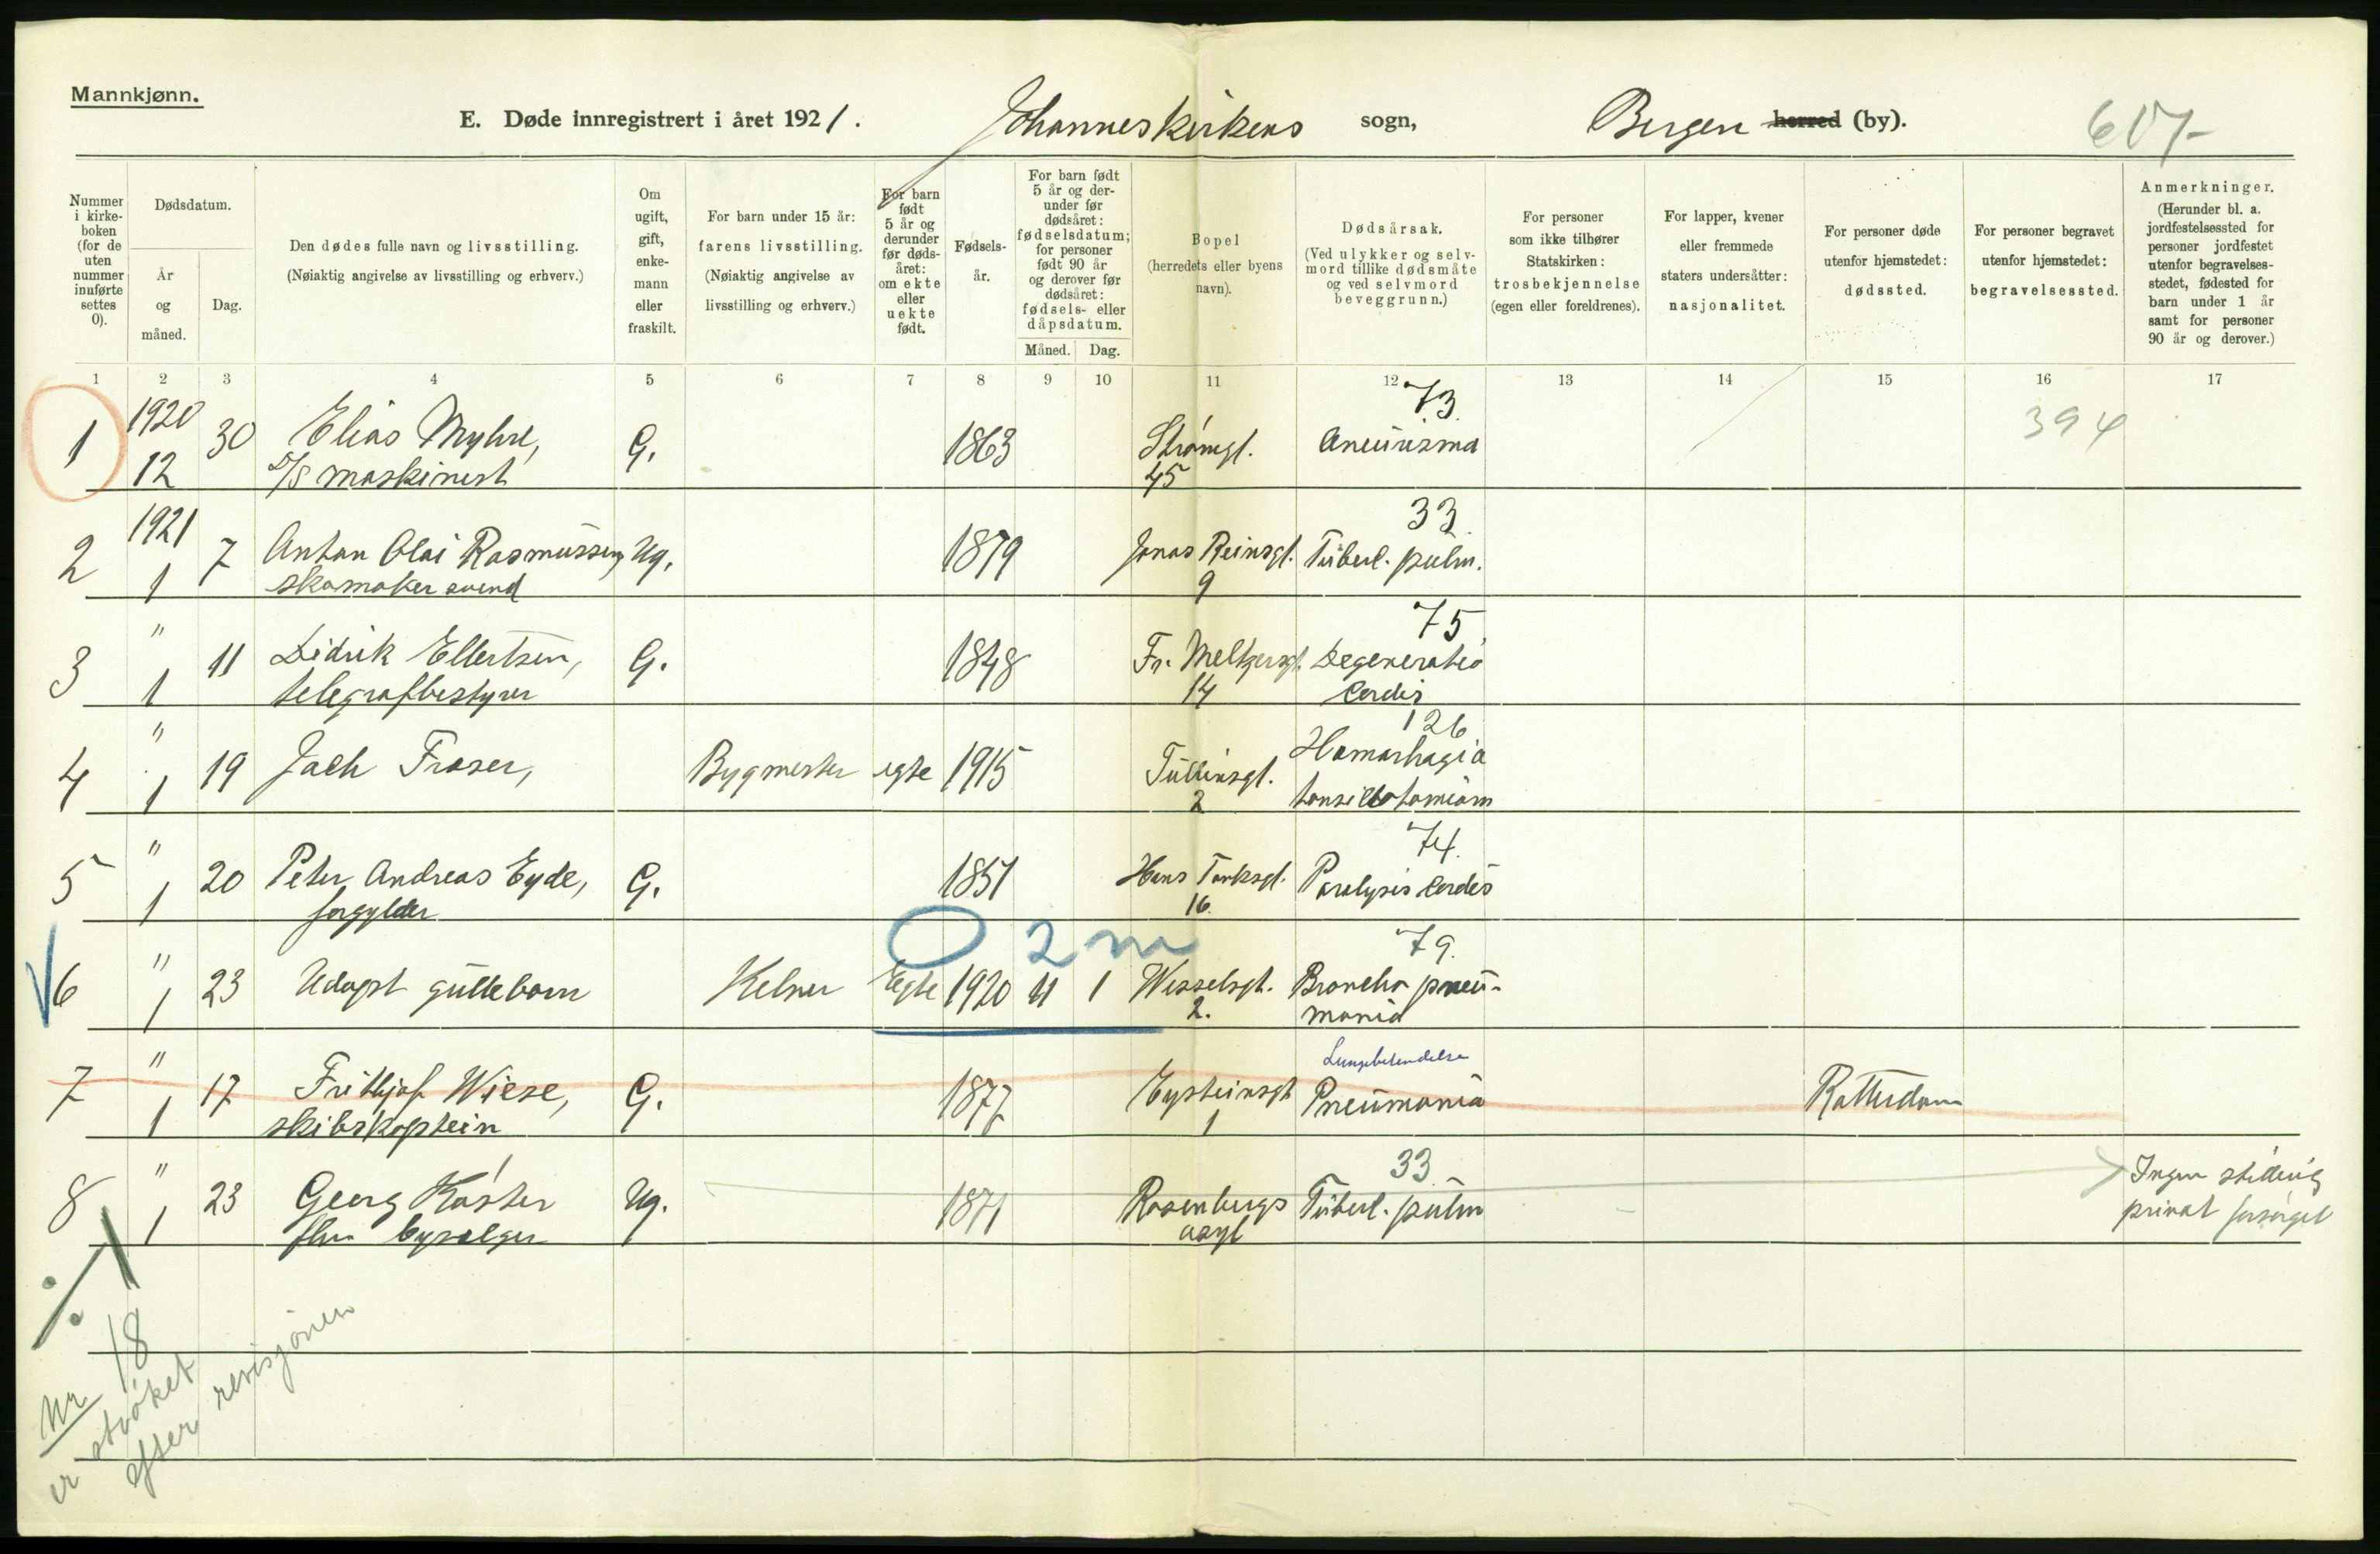 Mannkjønn.
E. Døde innregistrert i året 1921. Johanneskirkens sogn, Bergen herred (by).
Nummer i kirke-boken (for de uten nummer innførte settes 0).
Dødsdatum.
År og måned.
Dag.
Den dødes fulle navn og livsstilling.
(Nøiaktig angivelse av livsstilling og erhverv.)
Om ugift, gift, enke-mann eller fraskilt.
For barn under 15 år: farens livsstilling.
(Nøiaktig angivelse av livsstilling og erhverv.)
For barn født 5 år og derunder før døds-året: om ekte eller uekte født.
Fødsels-år.
For barn født 5 år og der-under før dødsåret: fødselsdatum; for personer født 90 år og derover før dødsåret: fødsels- eller dåpsdatum.
Måned. Dag.
Bopel (herredets eller byens navn).
Dødsårsak.
(Ved ulykker og selv-mord tillike dødsmåte og ved selvmord beveggrunn.)
For personer som ikke tilhører Statskirken: trosbekjennelse (egen eller foreldrenes).
For lapper, kvener eller fremmede staters undersåtter: nasjonalitet.
For personer døde utenfor hjemstedet: dødssted.
For personer begravet utenfor hjemstedet: begravelsessted.
Anmerkninger.
(Herunder bl. a. jordfestelsessted for personer jordfestet utenfor begravelses-stedet, fødested for barn under 1 år samt for personer 90 år og derover.)
1 2 3 4 5 6 7 8 9 10 11 12 13 14 15 16 17
1 1920 12 30 Elias Myhre, G. 1863 Strømgt. 45 73. Aneurisma 394
D/S maskinist
2 1921 1 7 Anton Olai Rasmussen, Ug. 1879 Jonas Reinsgt. 9 33. Tuberl. pulm.
skomaker svend
3 " 1 11 Didrik Ellertsen, G. 1848 Fr. Meltzersgt. 14 75 Degeneratio Cordis
telegrafbestyrer
4 " 1 19 Jach Fraser, Bygmester egte 1915 Tullinsgt. 2 126 Hamorhagia tonsillotomiam
5 " 1 20 Peter Andreas Eyde, G. 1851 Hans Tanksgt. 16. 74. Paralysis Cordis
forgylder
0 2 m
6 " 1 23 Udøpt guttebarn Kelner Egte 1920 11 1 Wesselsgt. 2. 79. Broncho pneu-monia
7 " 1 17 Frithjof Wiese, G. 1877 Eysteinsgt 1 Lungebetendelse Pneumonia Rotterdam
skibskaptein
8 " 1 23 Georg Köster Ug. 1871 Rosenbergs asyl 33. Tuberl. pulm Ingen stilling
fhv. byselger privat forsørget
Nr 18
er strøket
efter revisjonen